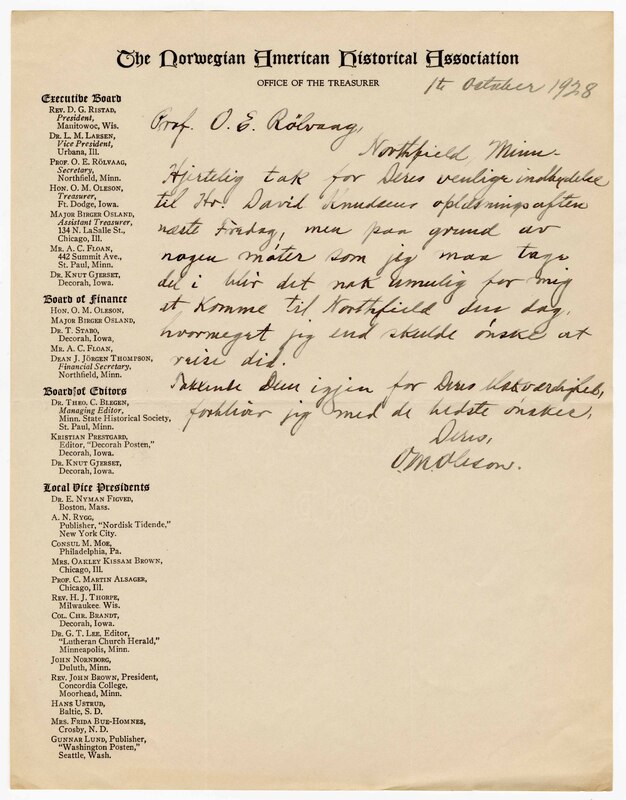 The Norwegian American Historical Association
OFFICE OF THE TREASURER
1te October 1928
Executive Board
REV. D. G. RISTAD,
President,
Manitowoc, Wis.
DR. L. M. LARSEN,
Vice President,
Urbana, Ill.
PROF. O. E. RÖLVAAG,
Secretary,
Northfield, Minn.
HON. O. M. OLESON,
Treasurer,
Ft. Dodge, Iowa.
MAJOR BIRGER OSLAND,
Assistant Treasurer,
134 N. LaSalle St.,
Chicago, Ill.
MR. A. C. FLOAN,
442 Summit Ave.,
St. Paul, Minn.
DR. KNUT GJERSET,
Decorah, Iowa.
Board of Finance
HON. O. M. OLESON,
MAJOR BIRGER OSLAND,
DR. T. STABO,
Decorah, Iowa,
MR. A. C. FLOAN,
DEAN J. JÖRGEN THOMPSON,
Financial Secretary,
Northfield, Minn.
Board of Editors
DR. THEO. C. BLEGEN,
Managing Editor,
Minn. State Historical Society,
St. Paul, Minn.
KRISTIAN PRESTGARD,
Editor, "Decorah Posten,"
Decorah, Iowa.
DR. KNUT GJERSET,
Decorah, Iowa.
Local Vice Presidents
DR. E. NYMAN FIGVED,
Boston, Mass.
A. N. RYGG,
Publisher, "Nordisk Tidende,"
New York City.
CONSUL M. MOE,
Philadelphia, Pa.
MRS. OAKLEY KISSAM BROWN,
Chicago, Ill.
PROF. C. MARTIN ALSAGER,
Chicago, Ill.
REV. H. J. THORPE,
Milwaukee Wis.
COL. CHR. BRANDT,
Decorah, Iowa.
DR. G. T. LEE, Editor,
"Lutheran Church Herald,"
Minneapolis, Minn.
JOHN NORNBORG,
Duluth, Minn.
REV. JOHN BROWN, President,
Concordia College,
Moorhead, Minn.
HANS USTRUD,
Baltic, S. D.
MRS. FRIDA BUE-HOMNES,
Crosby, N. D.
GUNNAR LUND, Publisher,
"Washington Posten,"
Seattle, Wash.
Prof. O. E. Rölvaag,
Northfield, Minn.
Hjertelig tak for Deres venlige indbydelse
til Hr. David Knudsens oplæsningsaften
næste Fredag, men paa grund av
nogen møter som jeg maa tage
del i blir det nok umulig for mig
at komme til Northfield den dag,
hvormeget jeg end skulde ønske at
reise did.
Takkende Dem igjen for Deres elskværdighet,
forbliver jeg med de bedste ønsker,
Deres,
O. M. Oleson.